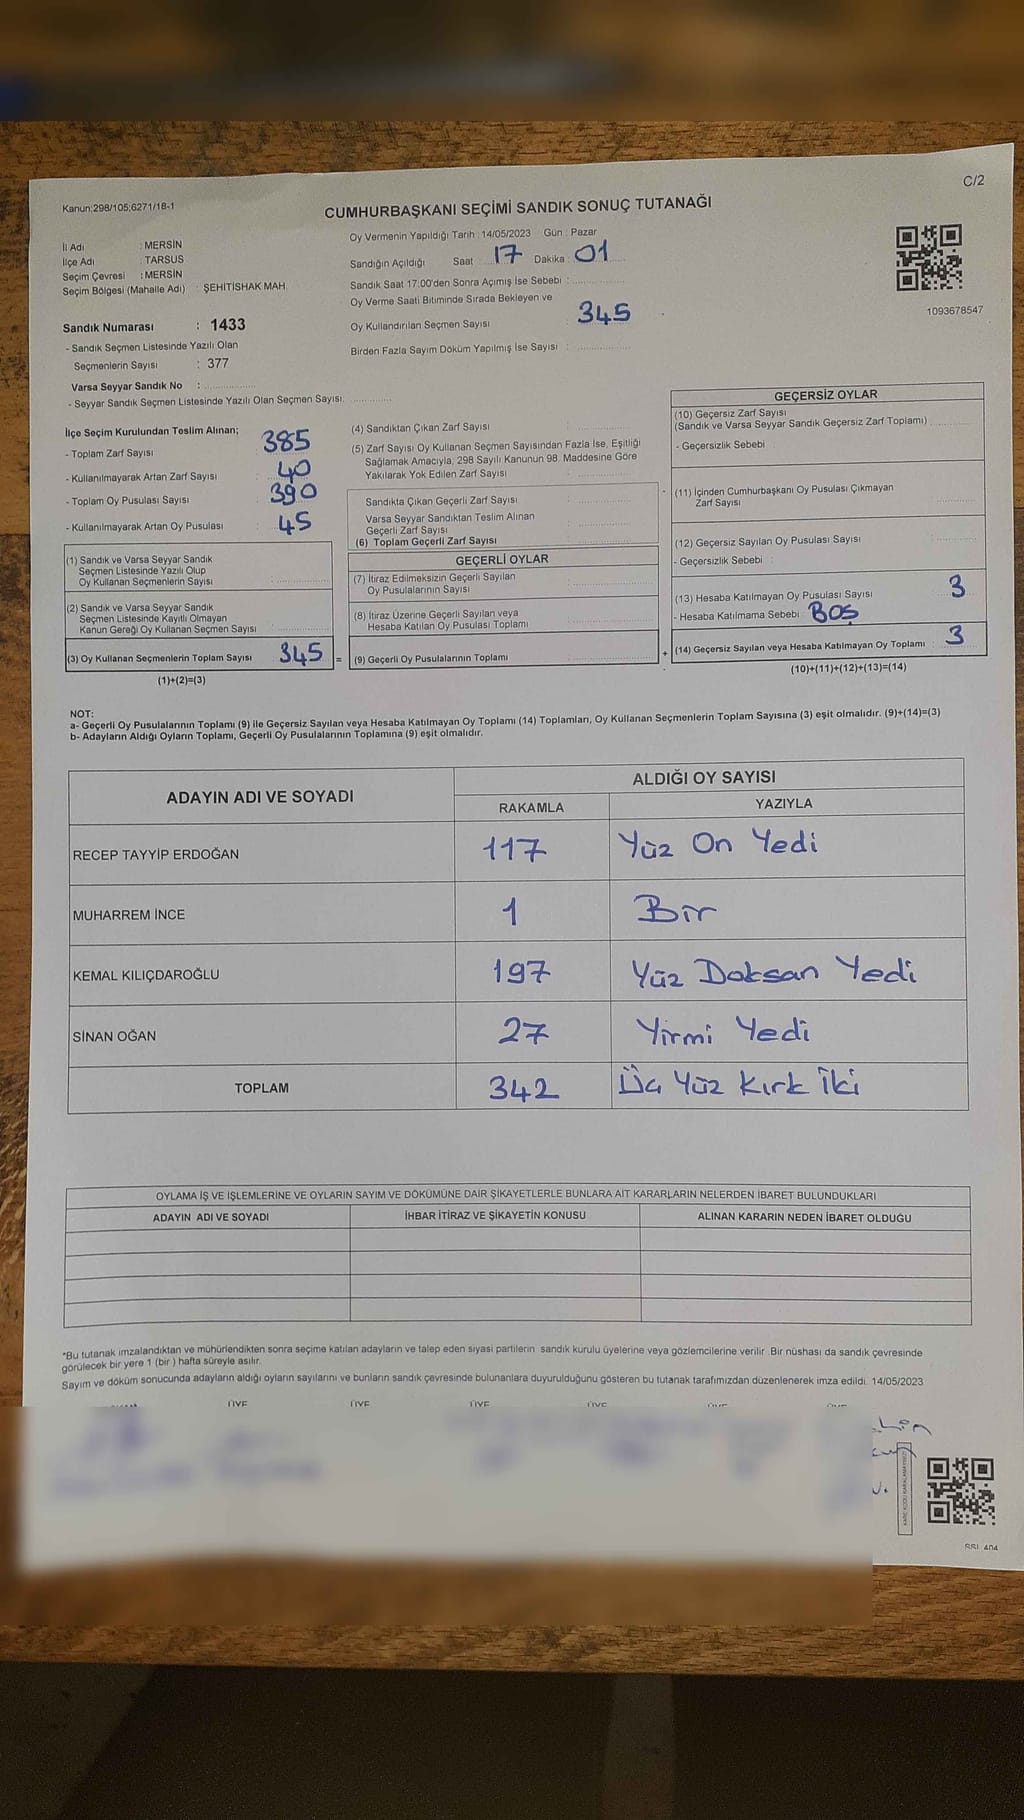 C/2
Kanun:298/105;6271/18-1
CUMHURBAŞKANI SEÇİMİ SANDIK SONUÇ TUTANAĞI
İl Adı : MERSİN
İlçe Adı : TARSUS
Seçim Çevresi : MERSİN
Seçim Bölgesi (Mahalle Adı) : ŞEHİTİSHAK MAH.
Oy Vermenin Yapıldığı Tarih : 14/05/2023 Gün : Pazar
Sandığın Açıldığı Saat 17 Dakika : 01
Sandık Saat 17:00'den Sonra Açımış İse Sebebi :
Oy Verme Saati Bitiminde Sırada Bekleyen ve
Oy Kullandırılan Seçmen Sayısı : 345
Birden Fazla Sayım Döküm Yapılmış İse Sayısı :
1093678547
Sandık Numarası : 1433
- Sandık Seçmen Listesinde Yazılı Olan
Seçmenlerin Sayısı : 377
Varsa Seyyar Sandık No :
- Seyyar Sandık Seçmen Listesinde Yazılı Olan Seçmen Sayısı:
İlçe Seçim Kurulundan Teslim Alınan;
- Toplam Zarf Sayısı : 385
- Kullanılmayarak Artan Zarf Sayısı : 40
- Toplam Oy Pusulası Sayısı : 390
- Kullanılmayarak Artan Oy Pusulası : 45
(1) Sandık ve Varsa Seyyar Sandık
Seçmen Listesinde Yazılı Olup
Oy Kullanan Seçmenlerin Sayısı :
(2) Sandık ve Varsa Seyyar Sandık
Seçmen Listesinde Kayıtlı Olmayan
Kanun Gereği Oy Kullanan Seçmen Sayısı :
(3) Oy Kullanan Seçmenlerin Toplam Sayısı 345 =
(1)+(2)=(3)
(4) Sandıktan Çıkan Zarf Sayısı :
(5) Zarf Sayısı Oy Kullanan Seçmen Sayısından Fazla İse, Eşitliği
Sağlamak Amacıyla; 298 Sayılı Kanunun 98. Maddesine Göre
Yakılarak Yok Edilen Zarf Sayısı :
Sandıkta Çıkan Geçerli Zarf Sayısı :
Varsa Seyyar Sandıktan Teslim Alınan
Geçerli Zarf Sayısı :
(6) Toplam Geçerli Zarf Sayısı
GEÇERLİ OYLAR
(7) İtiraz Edilmeksizin Geçerli Sayılan
Oy Pusulalarının Sayısı :
(8) İtiraz Üzerine Geçerli Sayılan veya
Hesaba Katılan Oy Pusulası Toplamı :
(9) Geçerli Oy Pusulalarının Toplamı +
GEÇERSİZ OYLAR
(10) Geçersiz Zarf Sayısı
(Sandık ve Varsa Seyyar Sandık Geçersiz Zarf Toplamı)
- Geçersizlik Sebebi :
(11) İçinden Cumhurbaşkanı Oy Pusulası Çıkmayan
Zarf Sayısı
(12) Geçersiz Sayılan Oy Pusulası Sayısı :
- Geçersizlik Sebebi :
(13) Hesaba Katılmayan Oy Pusulası Sayısı : 3
- Hesaba Katılmama Sebebi : BOŞ
(14) Geçersiz Sayılan veya Hesaba Katılmayan Oy Toplamı : 3
(10)+(11)+(12)+(13)=(14)
NOT:
a- Geçerli Oy Pusulalarının Toplamı (9) ile Geçersiz Sayılan veya Hesaba Katılmayan Oy Toplamı (14) Toplamları, Oy Kullanan Seçmenlerin Toplam Sayısına (3) eşit olmalıdır. (9)+(14)=(3)
b- Adayların Aldığı Oyların Toplamı, Geçerli Oy Pusulalarının Toplamına (9) eşit olmalıdır.
ADAYIN ADI VE SOYADI ALDIĞI OY SAYISI
RAKAMLA YAZIYLA
RECEP TAYYİP ERDOĞAN 117 Yüz On Yedi
MUHARREM İNCE 1 Bir
KEMAL KILIÇDAROĞLU 197 Yüz Doksan Yedi
SİNAN OĞAN 27 Yirmi Yedi
TOPLAM 342 Üç Yüz Kırk İki
OYLAMA İŞ VE İŞLEMLERİNE VE OYLARIN SAYIM VE DÖKÜMÜNE DAİR ŞİKAYETLERLE BUNLARA AİT KARARLARIN NELERDEN İBARET BULUNDUKLARI
ADAYIN ADI VE SOYADI İHBAR İTİRAZ VE ŞİKAYETİN KONUSU ALINAN KARARIN NEDEN İBARET OLDUĞU
*Bu tutanak imzalandıktan ve mühürlendikten sonra seçime katılan adayların ve talep eden siyasi partilerin sandık kurulu üyelerine veya gözlemcilerine verilir. Bir nüshası da sandık çevresinde
görülecek bir yere 1 (bir ) hafta süreyle asılır.
Sayım ve döküm sonucunda adayların aldığı oyların sayılarını ve bunların sandık çevresinde bulunanlara duyurulduğunu gösteren bu tutanak tarafımızdan düzenlenerek imza edildi. 14/05/2023
ÜYE ÜYE ÜYE ÜYE